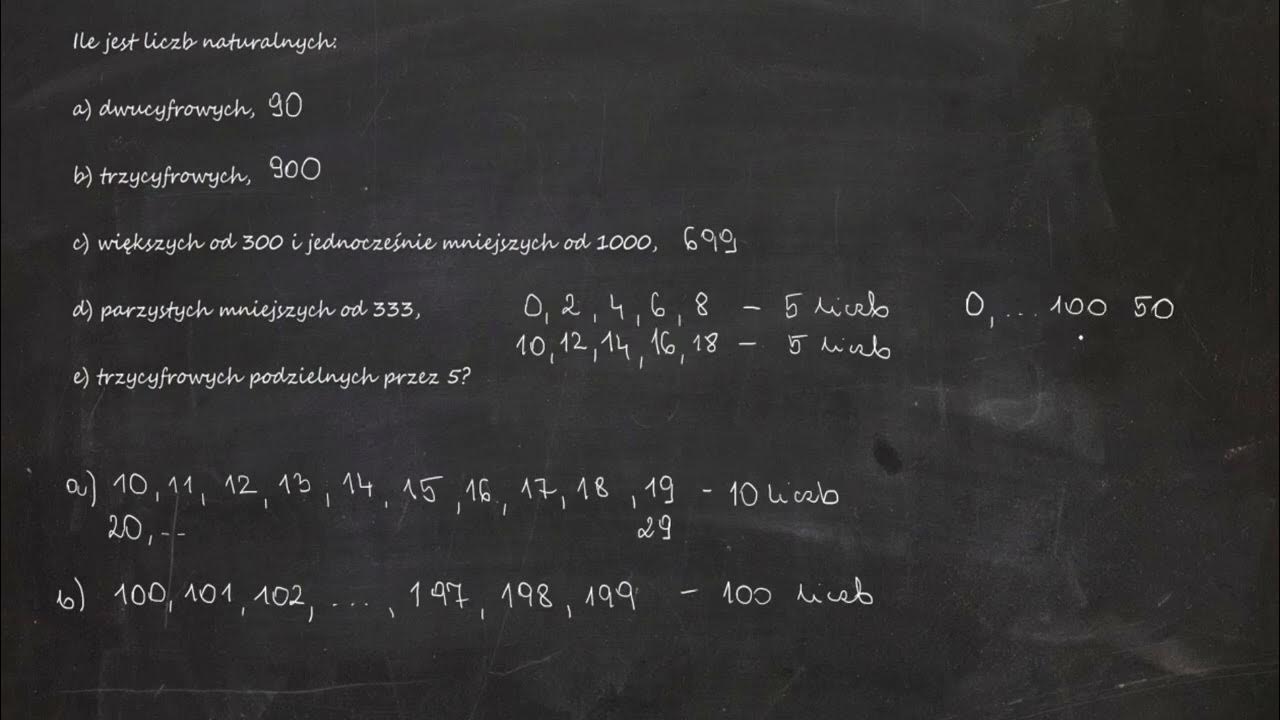 Ile jest liczb naturalnych:
a) dwucyfrowych, 90
b) trzycyfrowych, 900
c) większych od 300 i jednocześnie mniejszych od 1000, 699
d) parzystych mniejszych od 333, 0, 2, 4, 6, 8 – 5 liczb 0, ... 100 50
10, 12, 14, 16, 18 – 5 liczb
e) trzycyfrowych podzielnych przez 5?
a) 10, 11, 12, 13, 14, 15, 16, 17, 18, 19 – 10 liczb
20, -- 29
b) 100, 101, 102, ...., 197, 198, 199 – 100 liczb